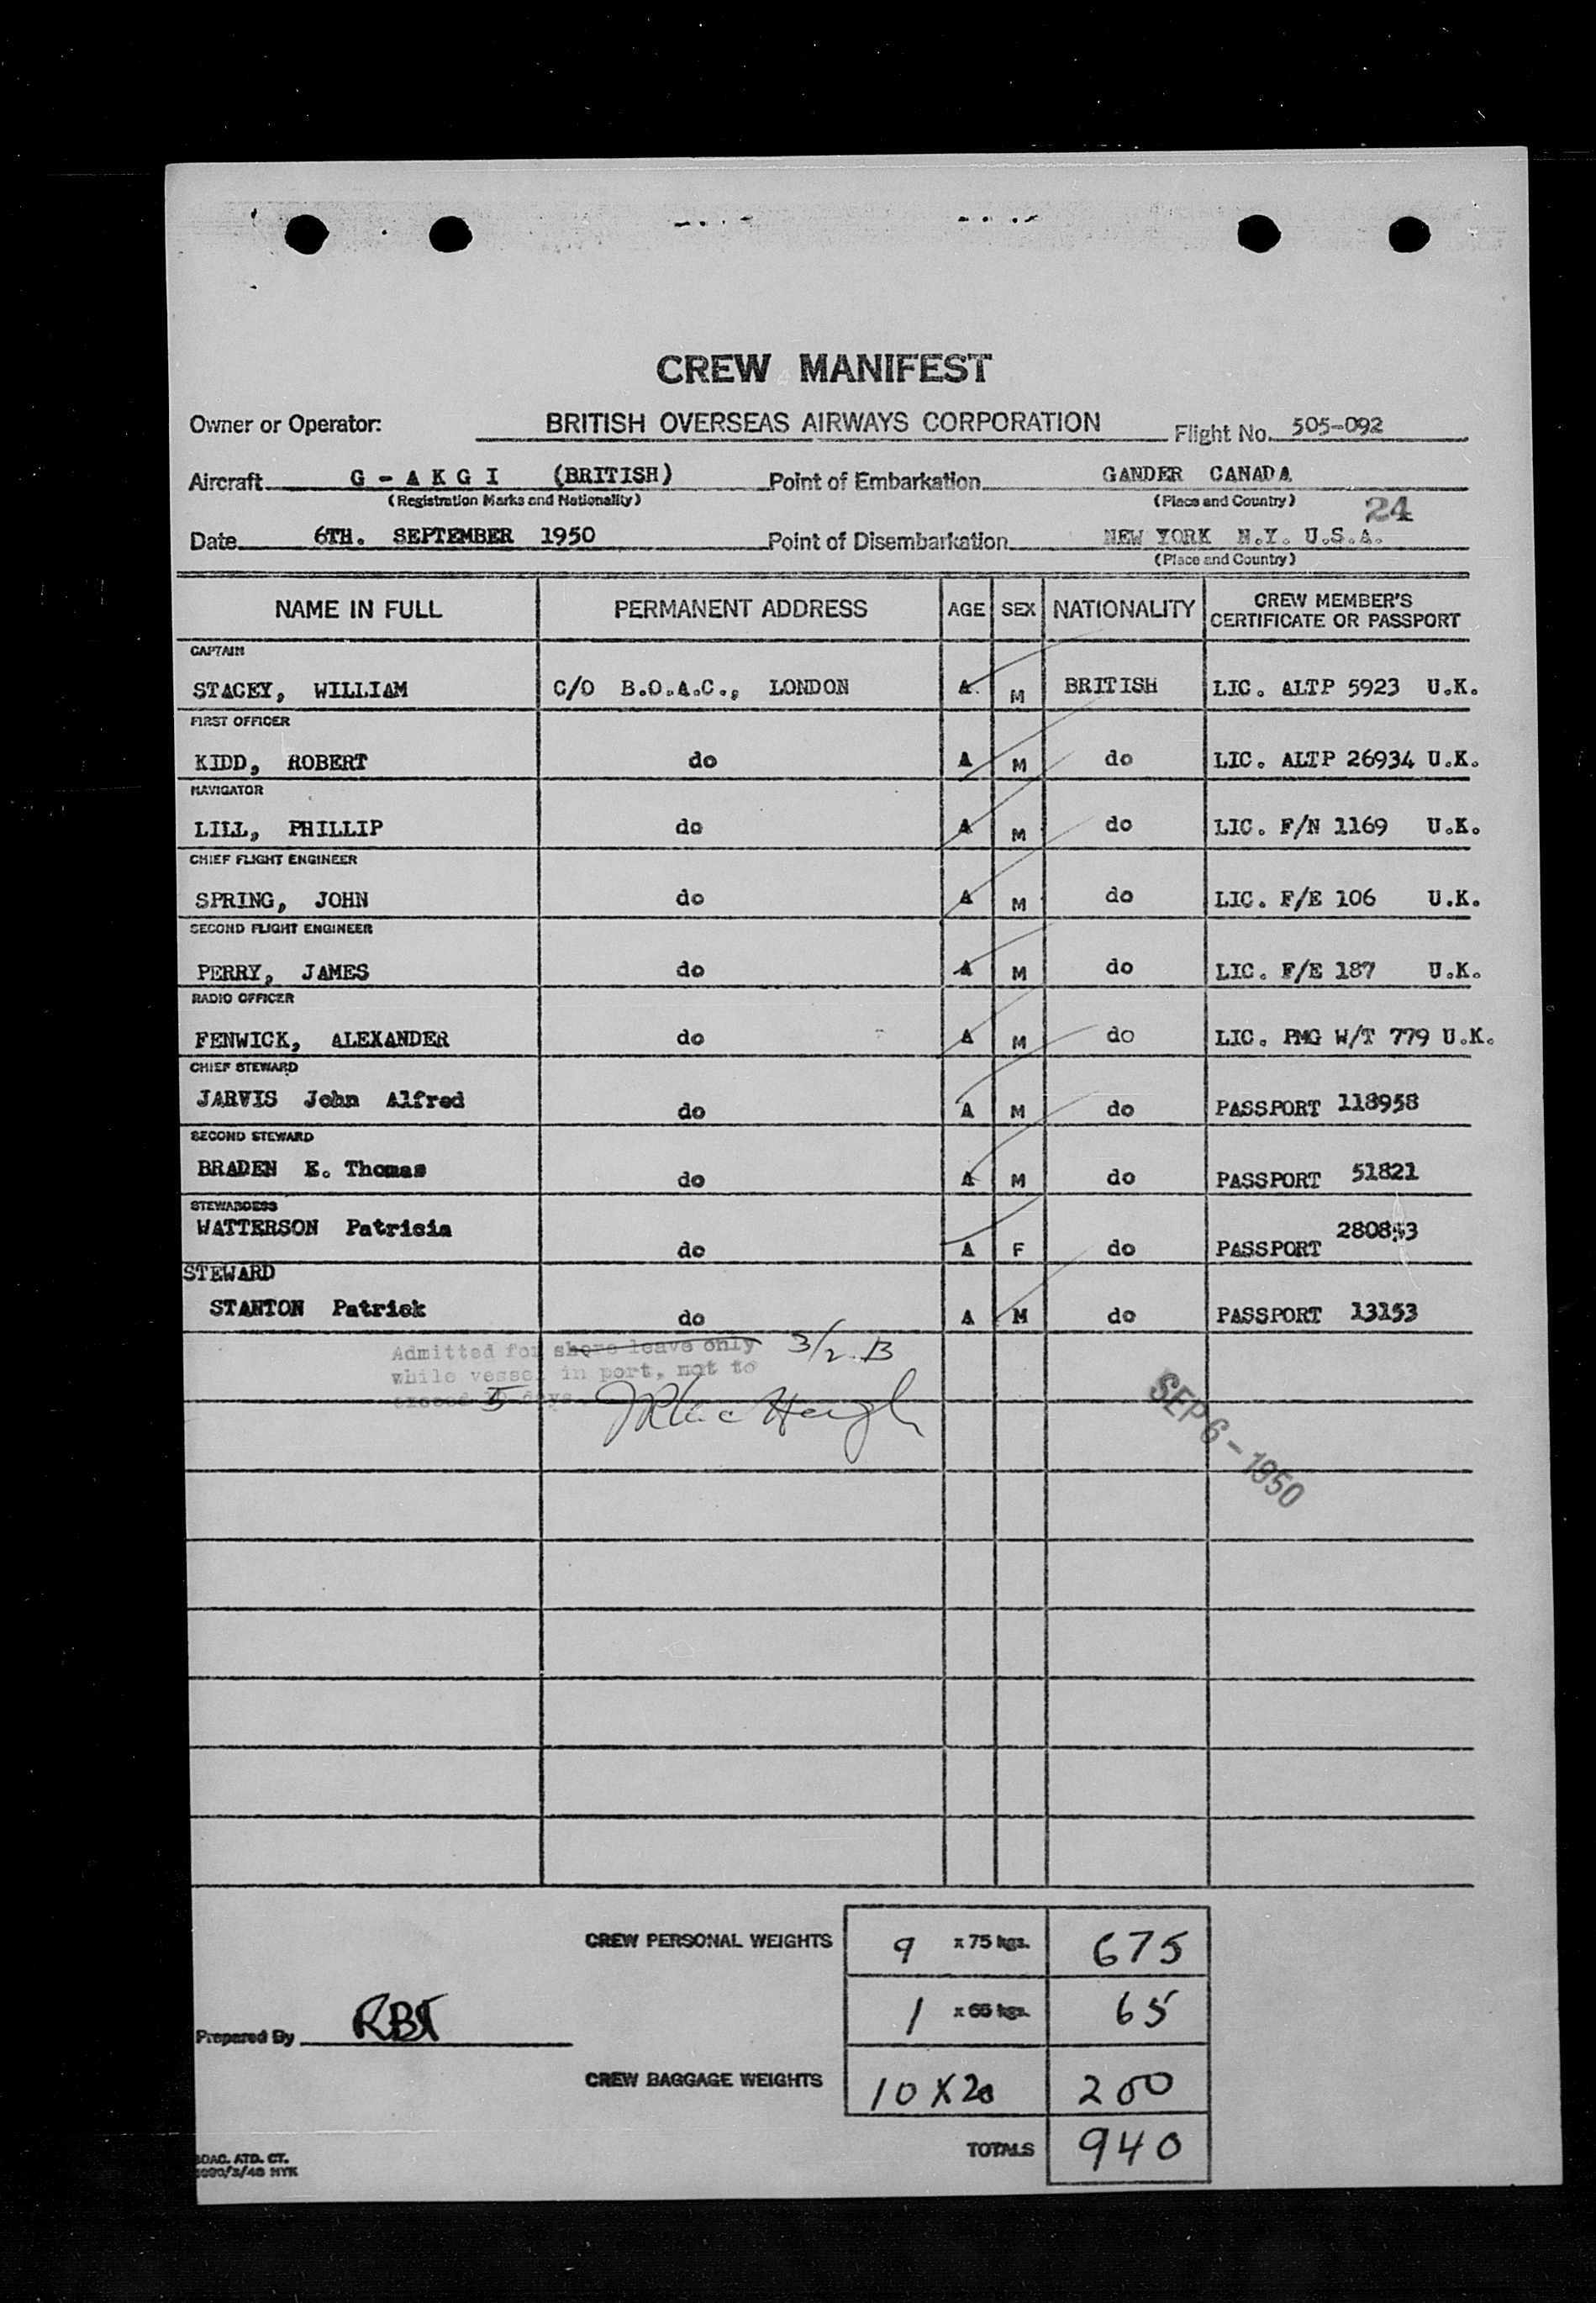 CREW MANIFEST
Owner or Operator: BRITISH OVERSEAS AIRWAYS CORPORATION Flight No. 505-092
Aircraft G - A K G I (BRITISH) Point of Embarkation GANDER CANADA
(Registration Marks and Nationality) (Place and Country)
24
Date 6TH. SEPTEMBER 1950 Point of Disembarkation NEW YORK N.Y. U.S.A.
(Place and Country)
NAME IN FULL PERMANENT ADDRESS AGE SEX NATIONALITY CREW MEMBER'S CERTIFICATE OR PASSPORT
CAPTAIN
STACEY, WILLIAM C/O B.O.A.C., LONDON A M BRITISH LIC. ALTP 5923 U.K.
FIRST OFFICER
KIDD, ROBERT do A M do LIC. ALTP 26934 U.K.
NAVIGATOR
LILL, PHILLIP do A M do LIC. F/N 1169 U.K.
CHIEF FLIGHT ENGINEER
SPRING, JOHN do A M do LIC. F/E 106 U.K.
SECOND FLIGHT ENGINEER
PERRY, JAMES do A M do LIC. F/E 187 U.K.
RADIO OFFICER
FENWICK, ALEXANDER do A M do LIC. PMG W/T 779 U.K.
CHIEF STEWARD
JARVIS John Alfred do A M do PASSPORT 118958
SECOND STEWARD
BRADEN E. Thomas do A M do PASSPORT 51821
STEWARDESS
WATTERSON Patricia do A F do PASSPORT
STEWARD
STANTON Patrick do A M do PASSPORT 13153
Admitted for shore leave only 3/2 B
while vessel in port, not to
exceed days
SEP 6 - 1950
CREW PERSONAL WEIGHTS 9 x 75 kgs. 675
1 x 65 kgs. 65
Prepared By RBT
CREW BAGGAGE WEIGHTS 10 X 20 200
TOTALS 940
BOAC. ATD. CT.